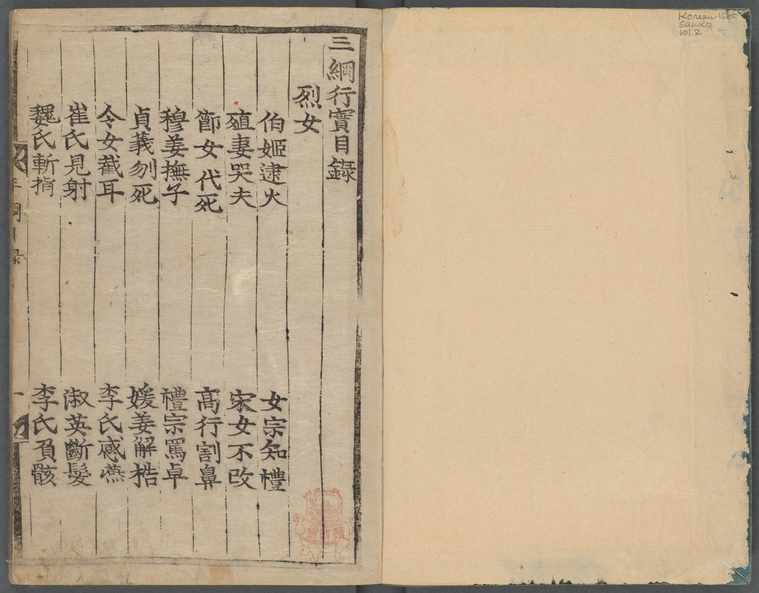 三綱行實目錄
烈女
伯姬逮火
女宗知禮
殖妻哭夫
宋女不改
節女代死
高行割鼻
穆姜撫子
禮宗罵卓
貞義刎死
媛姜解梏
令女截耳
李氏感燕
崔氏見射
淑英斷髮
魏氏斬指
李氏負骸
Korean
Sanko
vol. 2